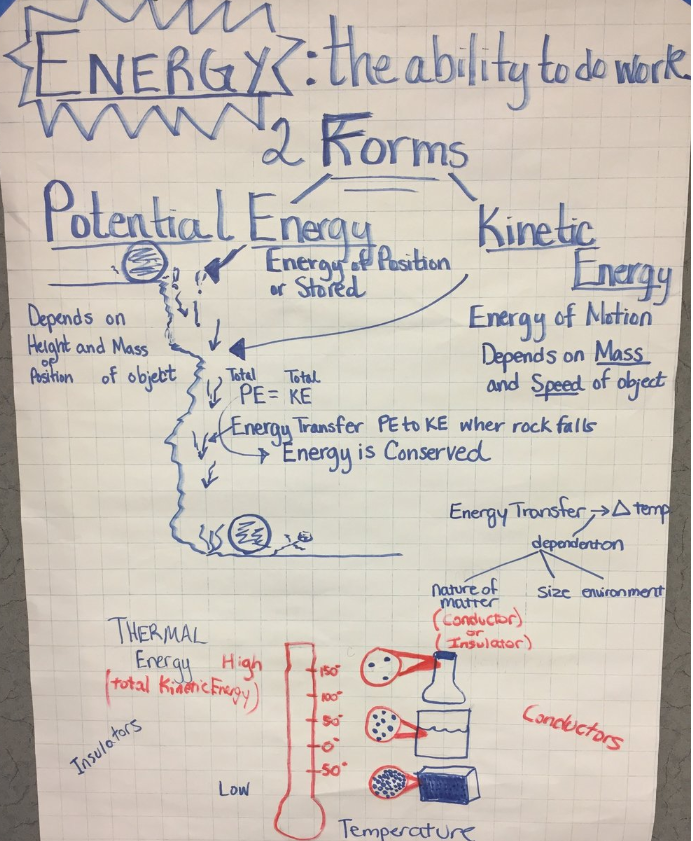 ENERGY: the ability to do work
2 Forms
Potential Energy
Kinetic
Energy
Energy of Position
or Stored
Energy of Motion
Depends on Mass
and Speed of object
Depends on
Height and Mass
or
Position of object
Total Total
PE = KE
Energy Transfer PE to KE when rock falls
Energy is Conserved
Energy Transfer → Δ temp
dependent on
nature of
matter
size
environment
(Conductor)
or
(Insulator)
THERMAL
Energy
(total Kinetic Energy)
High
150°
100°
50°
0°
-50°
Low
Insulators
Conductors
Temperature